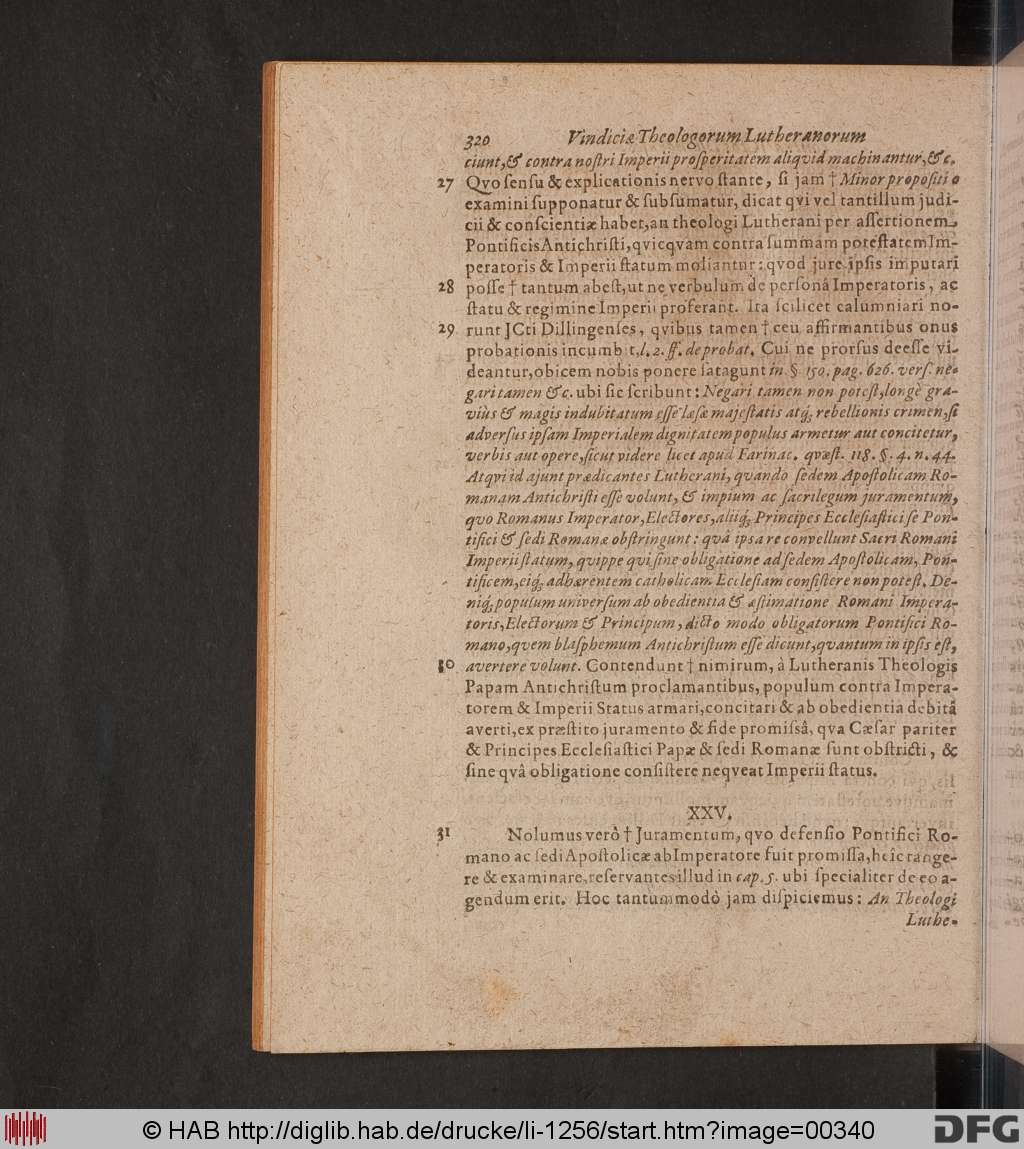 320 Vindiciæ Theologorum Lutheranorum
ciunt,& contra noſtri Imperii proſperitatem aliqvid machinantur,&c.
27 Qvo ſenſu & explicationis nervo ſtante, ſi jam † Minor propoſitio
examini ſupponatur & ſubſumatur, dicat qvi vel tantillum judi-
cii & conſcientiæ habet,an theologi Lutherani per aſſertionem
Pontificis Antichriſti,qvicqvam contra ſummam poteſtatem Im-
peratoris & Imperii ſtatum moliantur: qvod jure ipſis imputari
28 poſſe † tantum abeſt,ut ne verbulum de perſonâ Imperatoris, ac
ſtatu & regimine Imperii proferant. Ita ſcilicet calumniari no-
29 runt JCti Dillingenſes, qvibus tamen † ceu affirmantibus onus
probationis incumbit,l. 2. ff. de probat. Cui ne prorſus deeſſe vi-
deantur,obicem nobis ponere ſatagunt in §. 150. pag. 626. verſ. ne-
gari tamen &c. ubi ſic ſcribunt: Negari tamen non poteſt,longè gra-
viùs & magis indubitatum eſſe læſæ majeſtatis atq́; rebellionis crimen,ſi
adverſus ipſam Imperialem dignitatem populus armetur aut concitetur,
verbis aut opere,ſicut videre licet apud Farinac. quæſt. 118. §. 4. n. 44.
Atqvi id ajunt prædicantes Lutherani, qvando ſedem Apoſtolicam Ro-
manam Antichriſti eſſe volunt, & impium ac ſacrilegum juramentum,
quo Romanus Imperator,Electores,aliiq́; Principes Eccleſiaſtici ſe Pon-
tifici & ſedi Romanæ obſtringunt: quâ ipsa re convellunt Sacri Romani
Imperii ſtatum, quippe qui ſine obligatione ad ſedem Apoſtolicam, Pon-
tificem,eiq́; adhærentem catholicam Eccleſiam conſiſtere non poteſt. De-
niq́; populum univerſum ab obedientia & æſtimatione Romani Impera-
toris,Electorum & Principum, dicto modo obligatorum Pontifici Ro-
mano,quem blaſphemum Antichriſtum eſſe dicunt,quantum in ipſis eſt,
30 avertere volunt. Contendunt † nimirum, â Lutheranis Theologis
Papam Antichriſtum proclamantibus, populum contra Impera-
torem & Imperii Status armari,concitari & ab obedientia debitâ
averti,ex præſtito juramento & fide promiſſâ, qva Cæſar pariter
& Principes Eccleſiaſtici Papæ & ſedi Romanæ ſunt obſtricti, &
ſine qvâ obligatione conſiſtere neqveat Imperii ſtatus.
XXV.
31 Nolumus verò † Juramentum, qvo defenſio Pontifici Ro-
mano ac ſedi Apoſtolicæ ab Imperatore fuit promiſſa,heîc tange-
re & examinare,reſervantes illud in cap. 5. ubi ſpecialiter de eo a-
gendum erit. Hoc tantummodò jam diſpiciemus: An Theologi
Luthe-
© HAB http://diglib.hab.de/drucke/li-1256/start.htm?image=00340
DFG